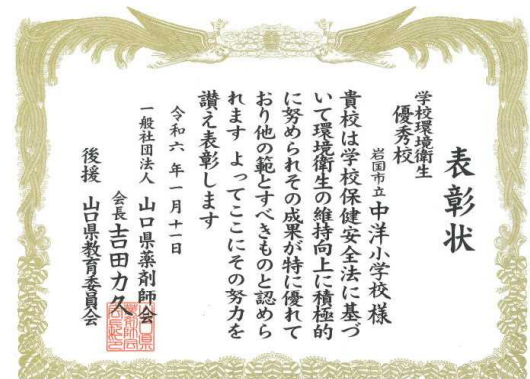 表彰状
学校環境衛生
優秀校
岩国市立 中洋小学校様
貴校は学校保健安全法に基づ
いて環境衛生の維持向上に積極的
に努められその成果が特に優れて
おり他の範とすべきものと認めら
れます よってここにその努力を
讃え表彰します
令和六年一月十一日
一般社団法人 山口県薬剤師会
会長 吉田力久
後援 山口県教育委員会